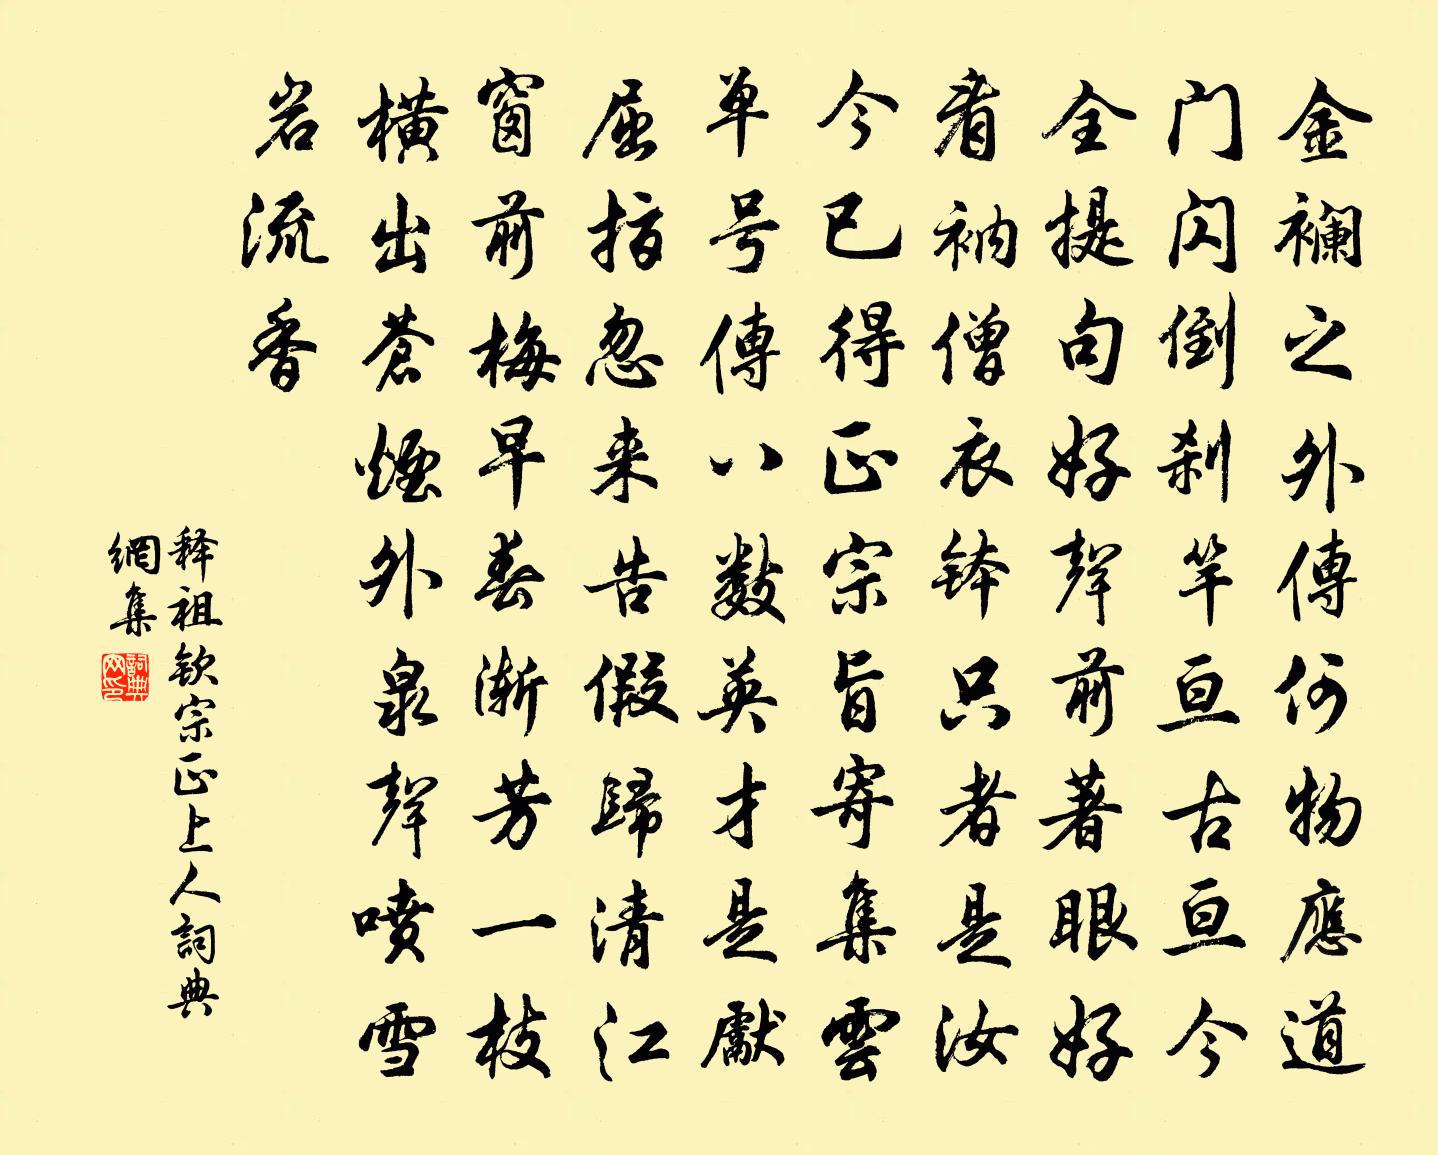 金襴之外傳何物應道
门闪倒刹竿亘古亘今
全提句好聲前著眼好
看衲僧衣钵只者是汝
今已得正宗旨寄集雲
单号傳八數英才是獻
屈指忽来告假歸清江
窗前梅早春渐芳一枝
橫出蒼煙外泉聲喷雪
岩流香
释祖钦宗正上人詞典
網集
詞典网印